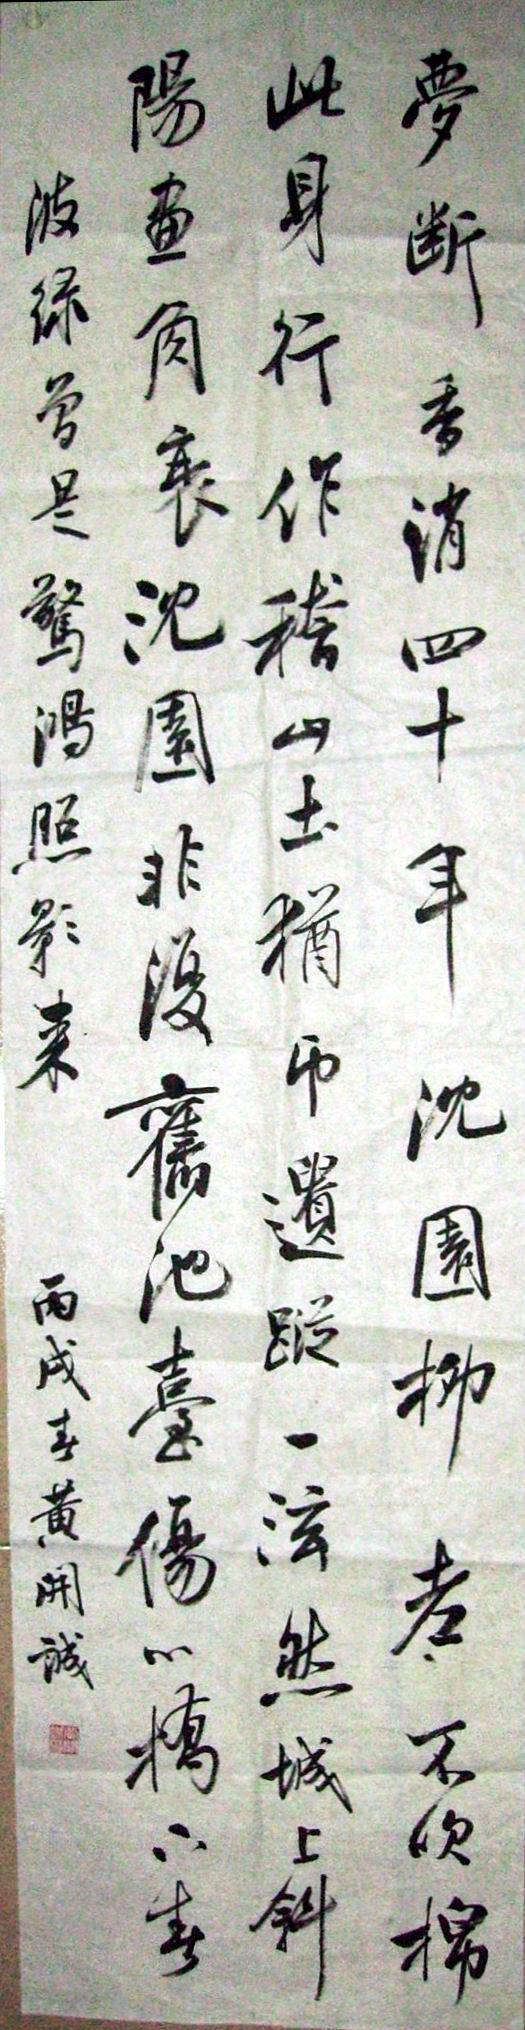 夢断香消四十年沈園柳老不吹棉
此身行作稽山土猶吊遺蹤一泫然城上斜
陽畫角哀沈園非復舊池臺傷心橋下春
波緑曾是驚鴻照影来
丙戌春黄開誠